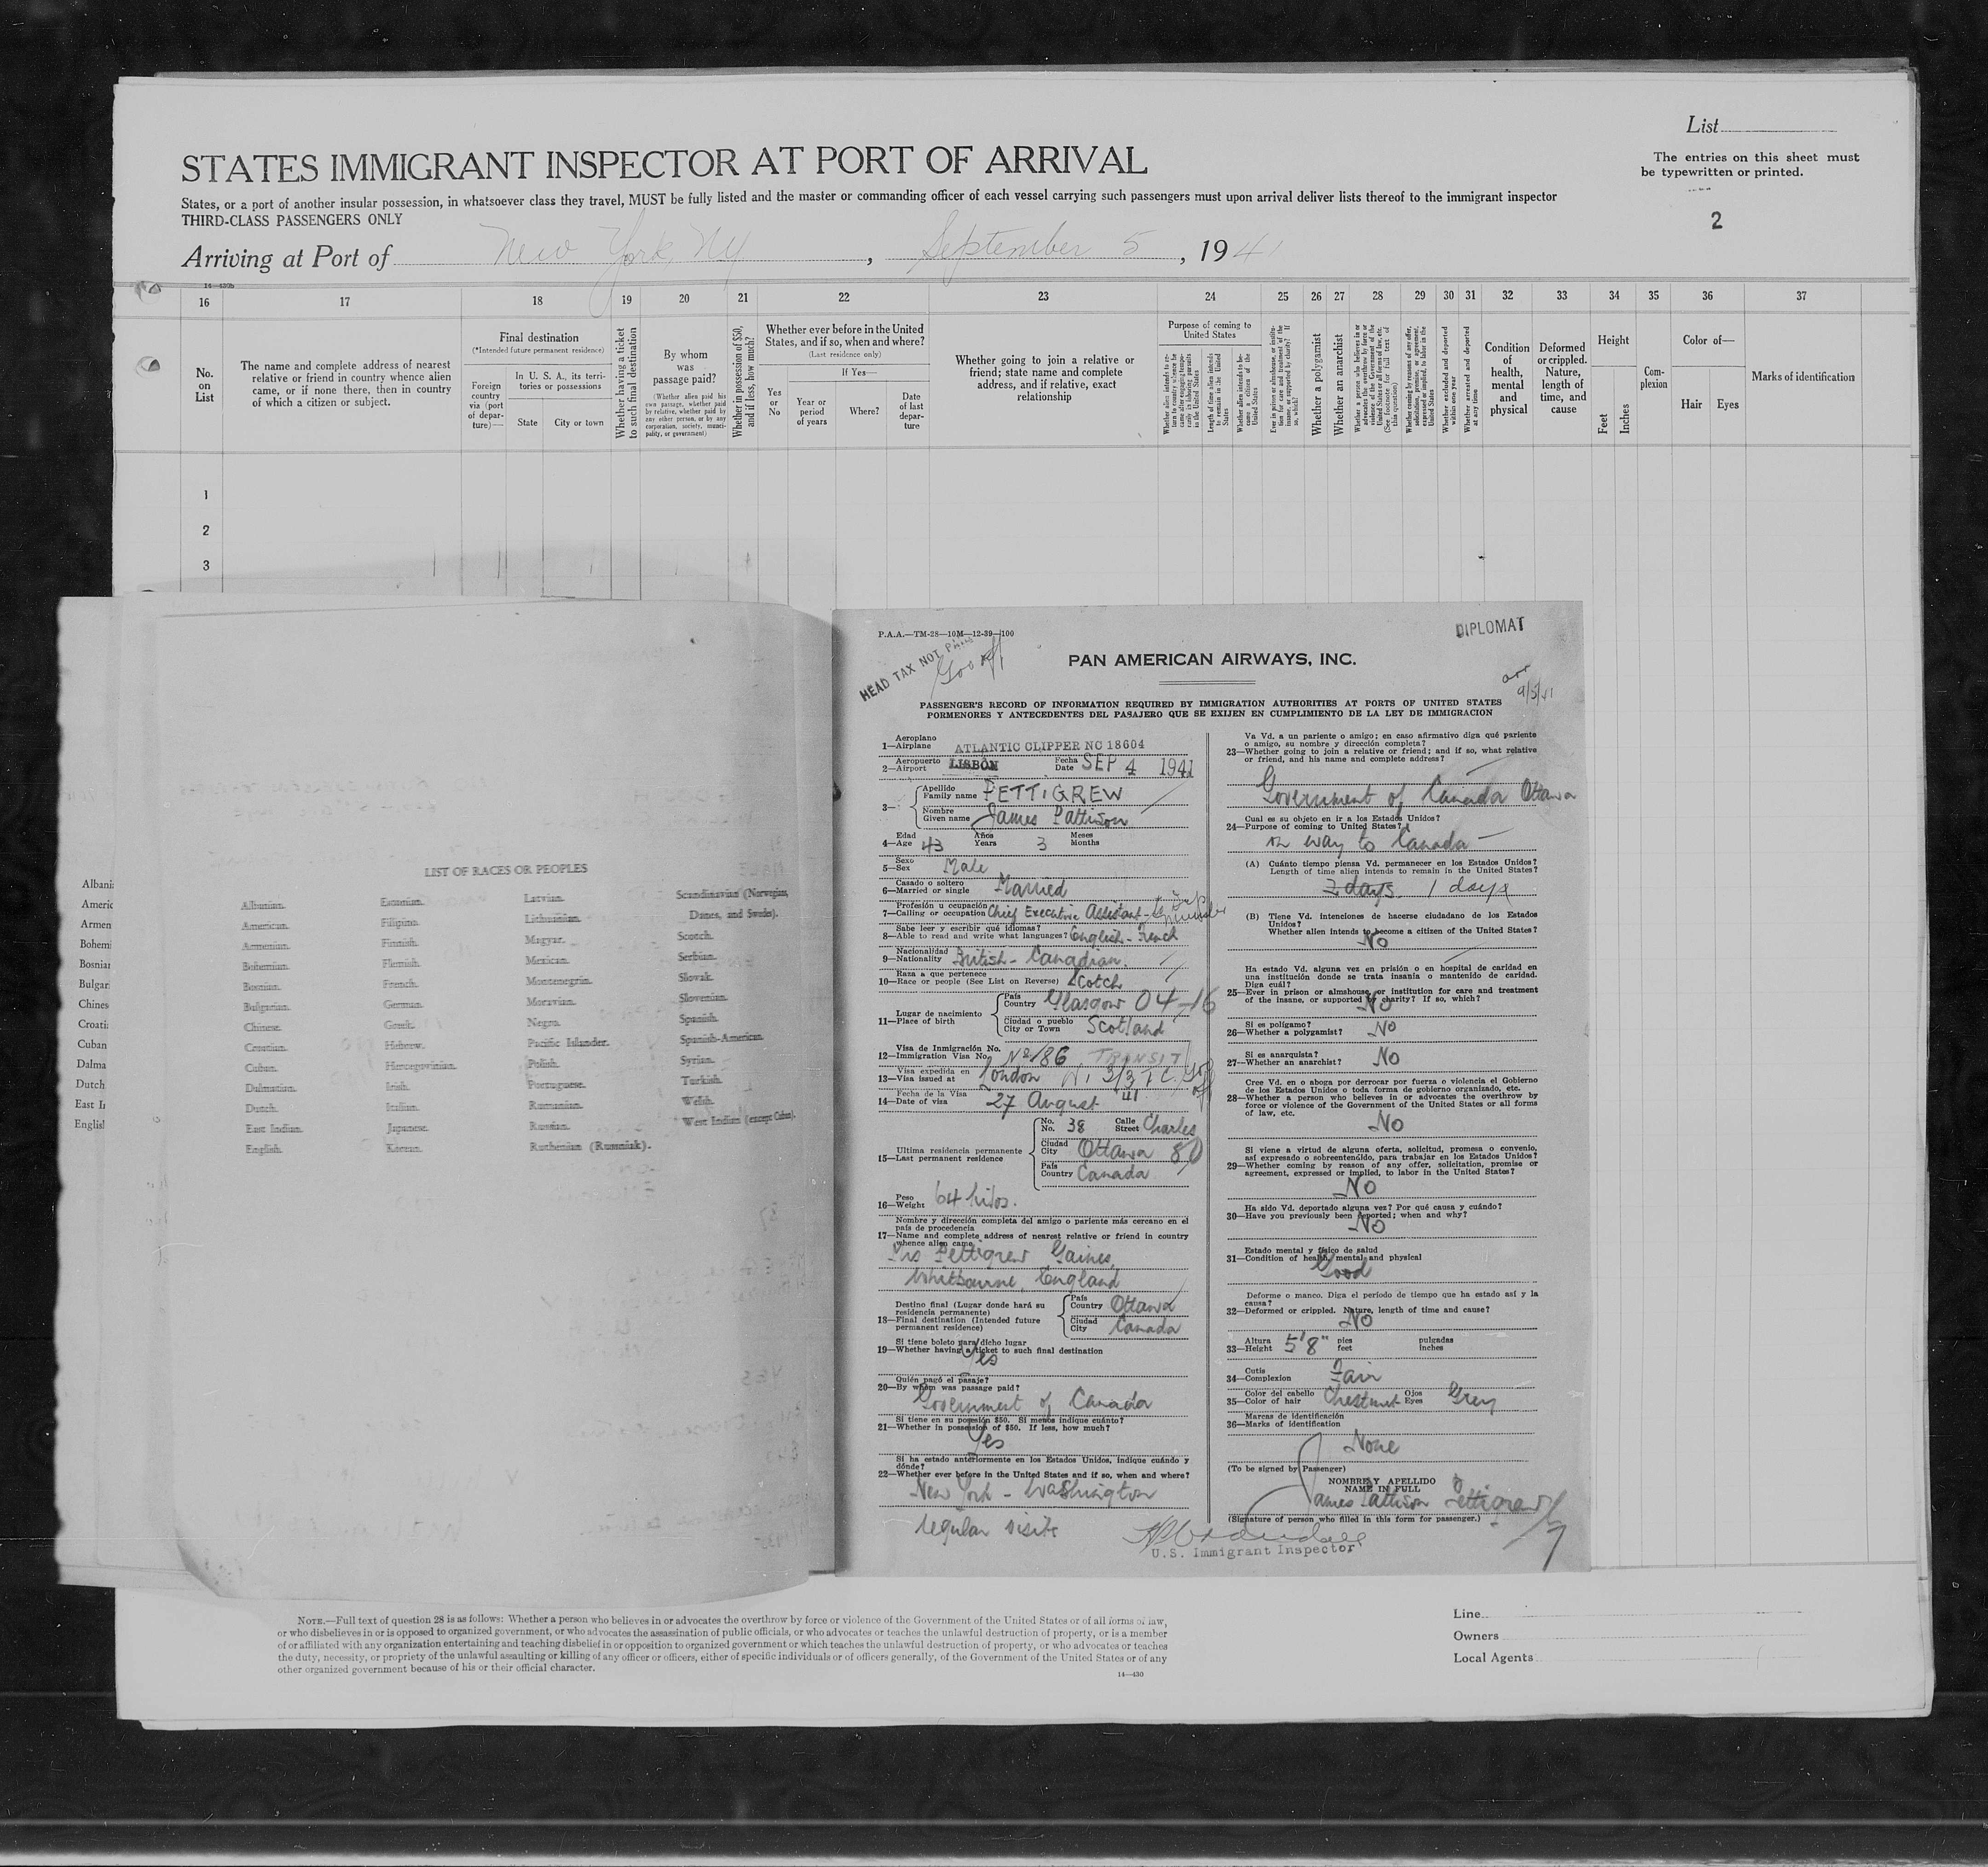 List
STATES IMMIGRANT INSPECTOR AT PORT OF ARRIVAL
The entries on this sheet must
be typewritten or printed.
States, or a port of another insular possession, in whatsoever class they travel, MUST be fully listed and the master or commanding officer of each vessel carrying such passengers must upon arrival deliver lists thereof to the immigrant inspector
THIRD-CLASS PASSENGERS ONLY
2
Arriving at Port of New York, NY, September 5, 1941
14—430b
16 17 18 19 20 21 22 23 24 25 26 27 28 29 30 31 32 33 34 35 36 37
No. on List
The name and complete address of nearest
relative or friend in country whence alien
came, or if none there, then in country
of which a citizen or subject.
Final destination
(*Intended future permanent residence)
Foreign country via (port of departure)—
In U. S. A., its territories or possessions
State
City or town
Whether having a ticket to such final destination
By whom was passage paid?
(Whether alien paid his own passage, whether paid by relative, whether paid by any other person, or by any corporation, society, municipality, or government)
Whether in possession of $50, and if less, how much?
Whether ever before in the United States, and if so, when and where?
(Last residence only)
Yes or No
If Yes—
Year or period of years
Where?
Date of last departure
Whether going to join a relative or
friend; state name and complete
address, and if relative, exact
relationship
Purpose of coming to United States
Length of time alien intends to remain in the United States
Whether alien intends to become a citizen of the United States
Whether a polygamist
Whether an anarchist
Whether excluded and deported within one year
Whether arrested and deported at any time
Condition of health, mental and physical
Deformed or crippled. Nature, length of time, and cause
Height
Feet
Inches
Complexion
Color of—
Hair
Eyes
Marks of identification
1
2
3
Albani
Americ
Armen
Bohemi
Bosnian
Bulgar
Chines
Croati
Cuban
Dalma
Dutch
East I
Englis
LIST OF RACES OR PEOPLES
Albanian. Estonian. Latvian. Scandinavian (Norwegian,
American. Filipino. Lithuanian. Danes, and Swedes).
Armenian. Finnish. Magyar. Scotch.
Bohemian. Flemish. Mexican. Serbian.
Bosnian. French. Montenegrin. Slovak.
Bulgarian. German. Moravian. Slovenian.
Chinese. Greek. Negro. Spanish.
Croatian. Hebrew. Pacific Islander. Spanish-American.
Cuban. Herzegovinian. Polish. Syrian.
Dalmatian. Irish. Portuguese. Turkish.
Dutch. Italian. Rumanian. Welsh.
East Indian. Japanese. Russian. West Indian (except Cuban).
English. Korean. Ruthenian (Russniak).
P.A.A.—TM-28—10M—12-39—100
HEAD TAX NOT PAID
DIPLOMAT
PAN AMERICAN AIRWAYS, INC.
arr 9/5/41
PASSENGER'S RECORD OF INFORMATION REQUIRED BY IMMIGRATION AUTHORITIES AT PORTS OF UNITED STATES
PORMENORES Y ANTECEDENTES DEL PASAJERO QUE SE EXIJEN EN CUMPLIMIENTO DE LA LEY DE IMMIGRACION
Aeroplano
1—Airplane ATLANTIC CLIPPER NC 18604
Aeropuerto Fecha
2—Airport LISBON Date SEP 4 1941
Apellido
3— Family name PETTIGREW
Nombre
Given name James Pattison
Edad Años Meses
4—Age 43 Years 3 Months
Sexo
5—Sex Male
Casado o soltero
6—Married or single Married
Profesión u ocupación
7—Calling or occupation Chief Executive Assistant
Sabe leer y escribir qué idiomas?
8—Able to read and write what languages? English - French
Nacionalidad
9—Nationality British - Canadian.
Raza a que pertenece
10—Race or people (See List on Reverse) Scotch
País
Country Glasgow 04-16
Lugar de nacimiento
11—Place of birth
Ciudad o pueblo
City or Town Scotland
Visa de Inmigración No.
12—Immigration Visa No. Nº 186 TRANSIT
Visa expedida en
13—Visa issued at London
Fecha de la Visa
14—Date of visa 27 August '41
No. Calle
No. 38 Street Charles
Ultima residencia permanente Ciudad
15—Last permanent residence City Ottawa 80
País
Country Canada
Peso
16—Weight 64 kilos.
Nombre y dirección completa del amigo o pariente más cercano en el
país de procedencia
17—Name and complete address of nearest relative or friend in country
whence alien came
Pettigrew Gaines,
Whitbourne, England
Destino final (Lugar donde hará su País
residencia permanente) Country Ottawa
18—Final destination (Intended future Ciudad
permanent residence) City Canada
Si tiene boleto para dicho lugar
19—Whether having a ticket to such final destination
Yes
Quién pagó el pasaje?
20—By whom was passage paid?
Government of Canada
Si tiene en su posesión $50. Si menos indique cuánto?
21—Whether in possession of $50. If less, how much?
Yes
Si ha estado anteriormente en los Estados Unidos, indique cuándo y
dónde?
22—Whether ever before in the United States and if so, when and where?
New York - Washington
regular visits
Va Vd. a un pariente o amigo; en caso afirmativo diga qué pariente
o amigo, su nombre y dirección completa?
23—Whether going to join a relative or friend; and if so, what relative
or friend, and his name and complete address?
Government of Canada Ottawa
Cual es su objeto en ir a los Estados Unidos?
24—Purpose of coming to United States?
on way to Canada
(A) Cuánto tiempo piensa Vd. permanecer en los Estados Unidos?
Length of time alien intends to remain in the United States?
2 days. 1 days
(B) Tiene Vd. intenciones de hacerse ciudadano de los Estados
Unidos?
Whether alien intends to become a citizen of the United States?
No
Ha estado Vd. alguna vez en prisión o en hospital de caridad en
una institución donde se trata insania o mantenido de caridad.
Diga cuál?
25—Ever in prison or almshouse, or institution for care and treatment
of the insane, or supported by charity? If so, which?
No
Si es polígamo?
26—Whether a polygamist? No
Si es anarquista?
27—Whether an anarchist? No
Cree Vd. en o aboga por derrocar por fuerza o violencia el Gobierno
de los Estados Unidos o toda forma de gobierno organizado, etc.
28—Whether a person who believes in or advocates the overthrow by
force or violence of the Government of the United States or all forms
of law, etc.
No
Si viene a virtud de alguna oferta, solicitud, promesa o convenio,
así expresado o sobreentendido, para trabajar en los Estados Unidos?
29—Whether coming by reason of any offer, solicitation, promise or
agreement, expressed or implied, to labor in the United States?
No
Ha sido Vd. deportado alguna vez? Por qué causa y cuándo?
30—Have you previously been deported; when and why?
No
Estado mental y físico de salud
31—Condition of health, mental and physical
Good
Deforme o manco. Diga el período de tiempo que ha estado así y la
causa?
32—Deformed or crippled. Nature, length of time and cause?
No
Altura pies pulgadas
33—Height 5'8" feet inches
Cutis
34—Complexion Fair
Color del cabello Ojos
35—Color of hair Chestnut Eyes Grey
Marcas de identificación
36—Marks of identification
None
(To be signed by Passenger)
NOMBRE Y APELLIDO
NAME IN FULL
James Pattison Pettigrew
(Signature of person who filled in this form for passenger.)
U.S. Immigrant Inspector
NOTE.—Full text of question 28 is as follows: Whether a person who believes in or advocates the overthrow by force or violence of the Government of the United States or of all forms of law,
or who disbelieves in or is opposed to organized government, or who advocates the assassination of public officials, or who advocates or teaches the unlawful destruction of property, or is a member
of or affiliated with any organization entertaining and teaching disbelief in or opposition to organized government or which teaches the unlawful destruction of property, or who advocates or teaches
the duty, necessity, or propriety of the unlawful assaulting or killing of any officer or officers, either of specific individuals or of officers generally, of the Government of the United States or of any
other organized government because of his or their official character.
14—430
Line
Owners
Local Agents